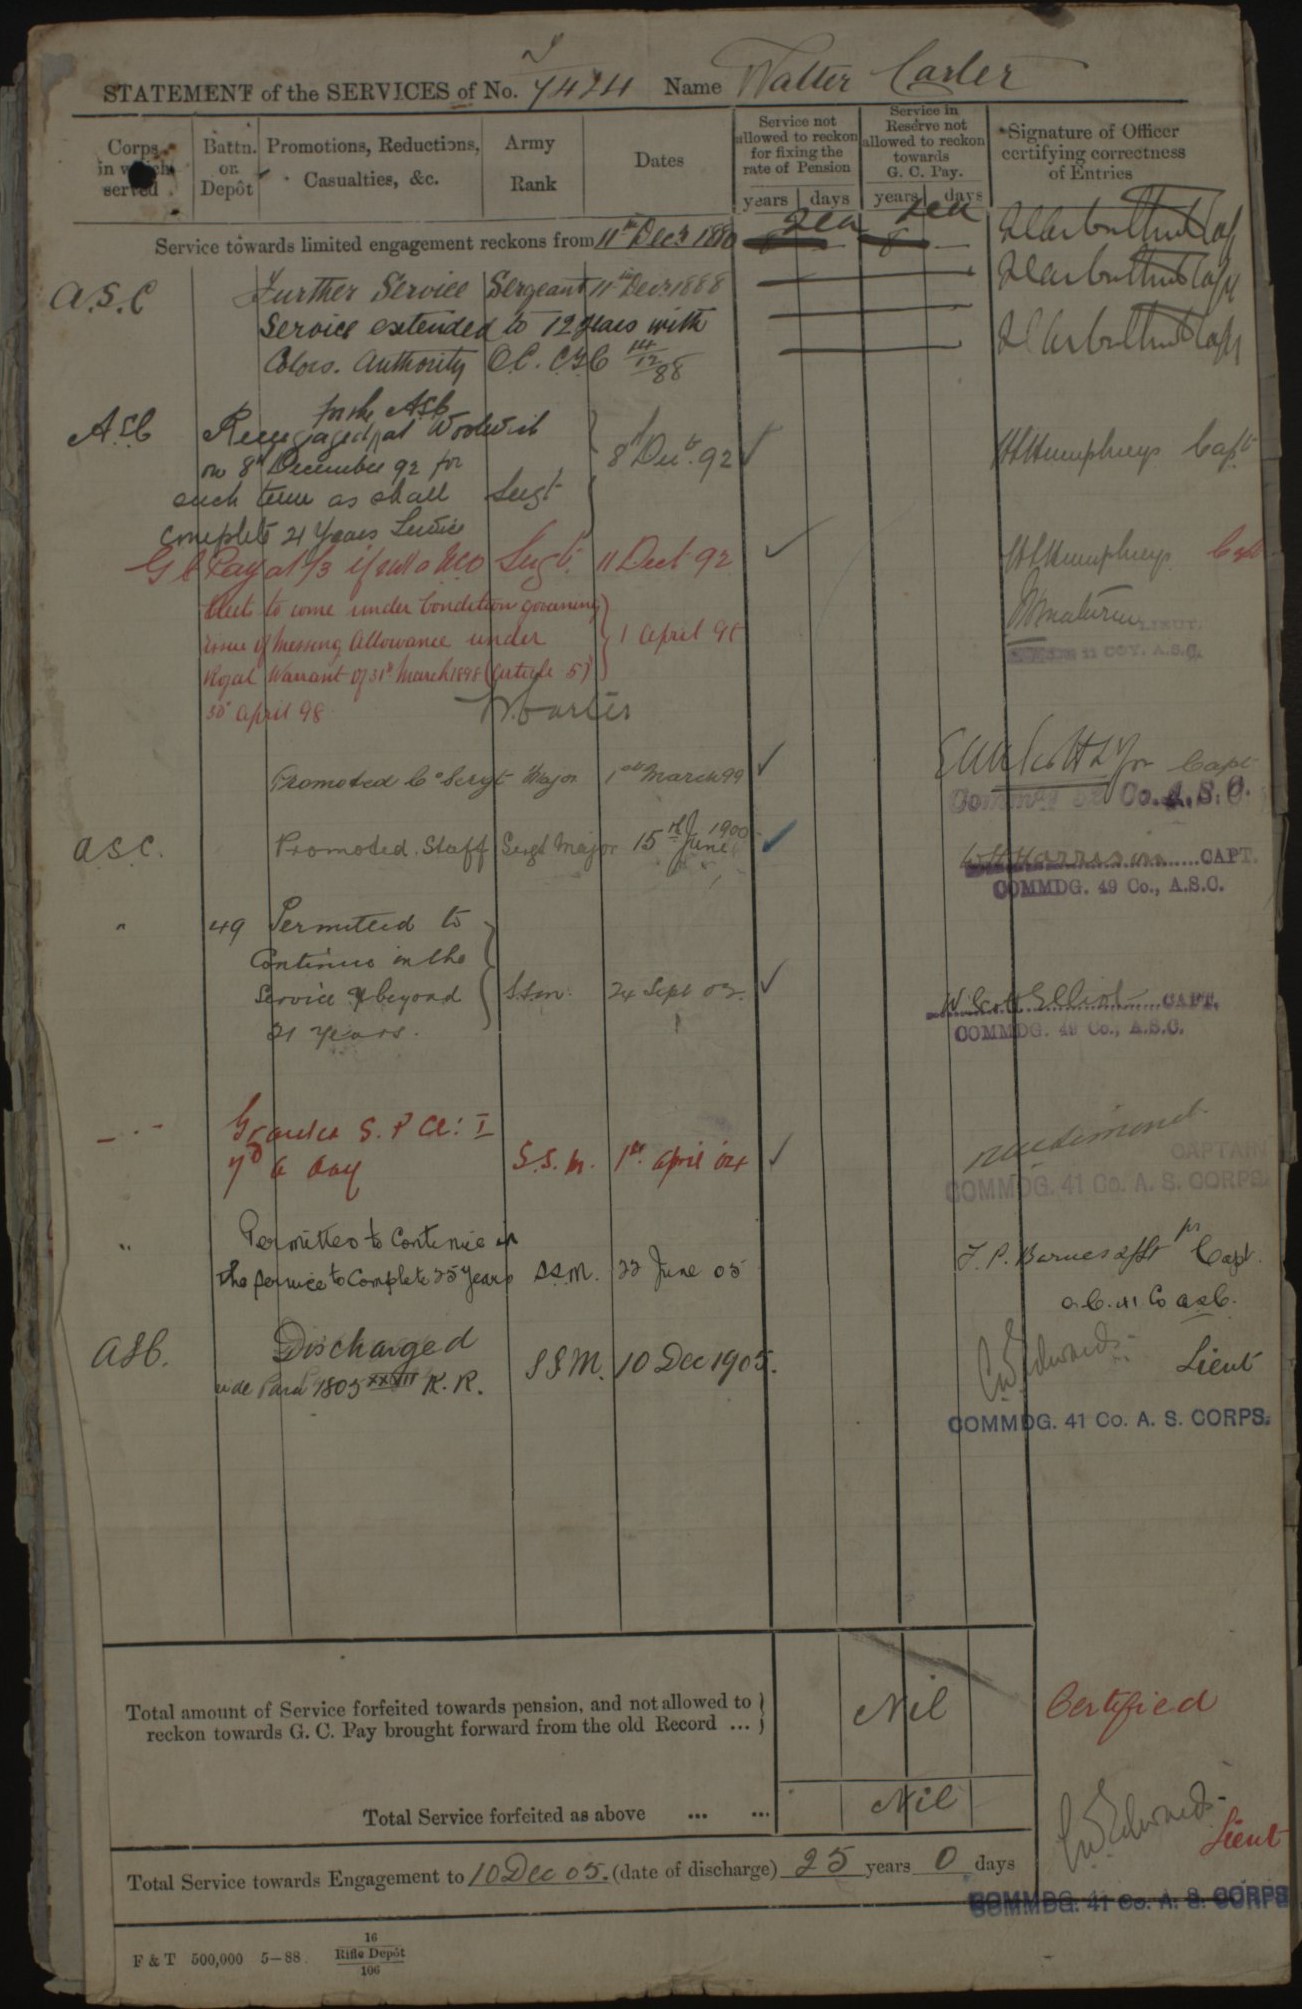 STATEMENT of the SERVICES of No. 7424 Name Walter Carter
Corps in which served
Battn. or Depôt
Promotions, Reductions, Casualties, &c.
Army Rank
Dates
Service not allowed to reckon for fixing the rate of Pension
years days
Service in Reserve not allowed to reckon towards G. C. Pay.
years days
Signature of Officer certifying correctness of Entries
Service towards limited engagement reckons from 11th Decr 1880
A.S.C Further Service Sergeant 11th Decr 1888
Service extended to 12 years with
Colors. Authority O.C. 14/12/88
for the ASC
ASC Reengaged at Woolwich
on 8th December 92 for 8th Decr. 92 Humphreys Capt
such term as shall Sergt
complete 21 Years Service
G C Pay at 1/3 Sergt. 11 Dect 92 Humphreys Capt
Elects to come under Condition governing
issue of Messing Allowance under 1 April 98 LIEUT.
Royal Warrant of 31st March 1898 (Article 5) 11 COY. A.S.C.
30 April 98 W. Carter
Promoted Co Sergt Major 1st March 99 Capt
Co. A.S.C.
A.S.C. Promoted Staff Sergt Major 15th June 1900 Harrison CAPT.
COMMDG. 49 Co., A.S.C.
" 49 Permitted to
Continue in the
Service beyond S.S.M. 24 Sept 02. W. Scott Elliot CAPT.
21 Years. COMMDG. 49 Co., A.S.C.
Granted S. P Cl: I
7d a day S.S.M. 1st April 04 CAPTAIN
COMMDG. 41 Co. A. S. CORPS.
" Permitted to Continue in
the service to Complete 25 years S.S.M. 22 June 05 F. P. Barnes 2/Lt pr Capt.
O.C. 41 Co A.S.C.
ASC. Discharged S.S.M. 10 Dec 1905. Edwards Lieut
vide Para 1805 XXVII K. R.
COMMDG. 41 Co. A. S. CORPS.
Total amount of Service forfeited towards pension, and not allowed to
reckon towards G. C. Pay brought forward from the old Record ... Nil Certified
Total Service forfeited as above ... ... Nil
Edwards Lieut
Total Service towards Engagement to 10 Dec 05. (date of discharge) 25 years 0 days
COMMDG. 41 Co. A. S. CORPS
F & T 500,000 5—88. 16 Rifle Depôt 106